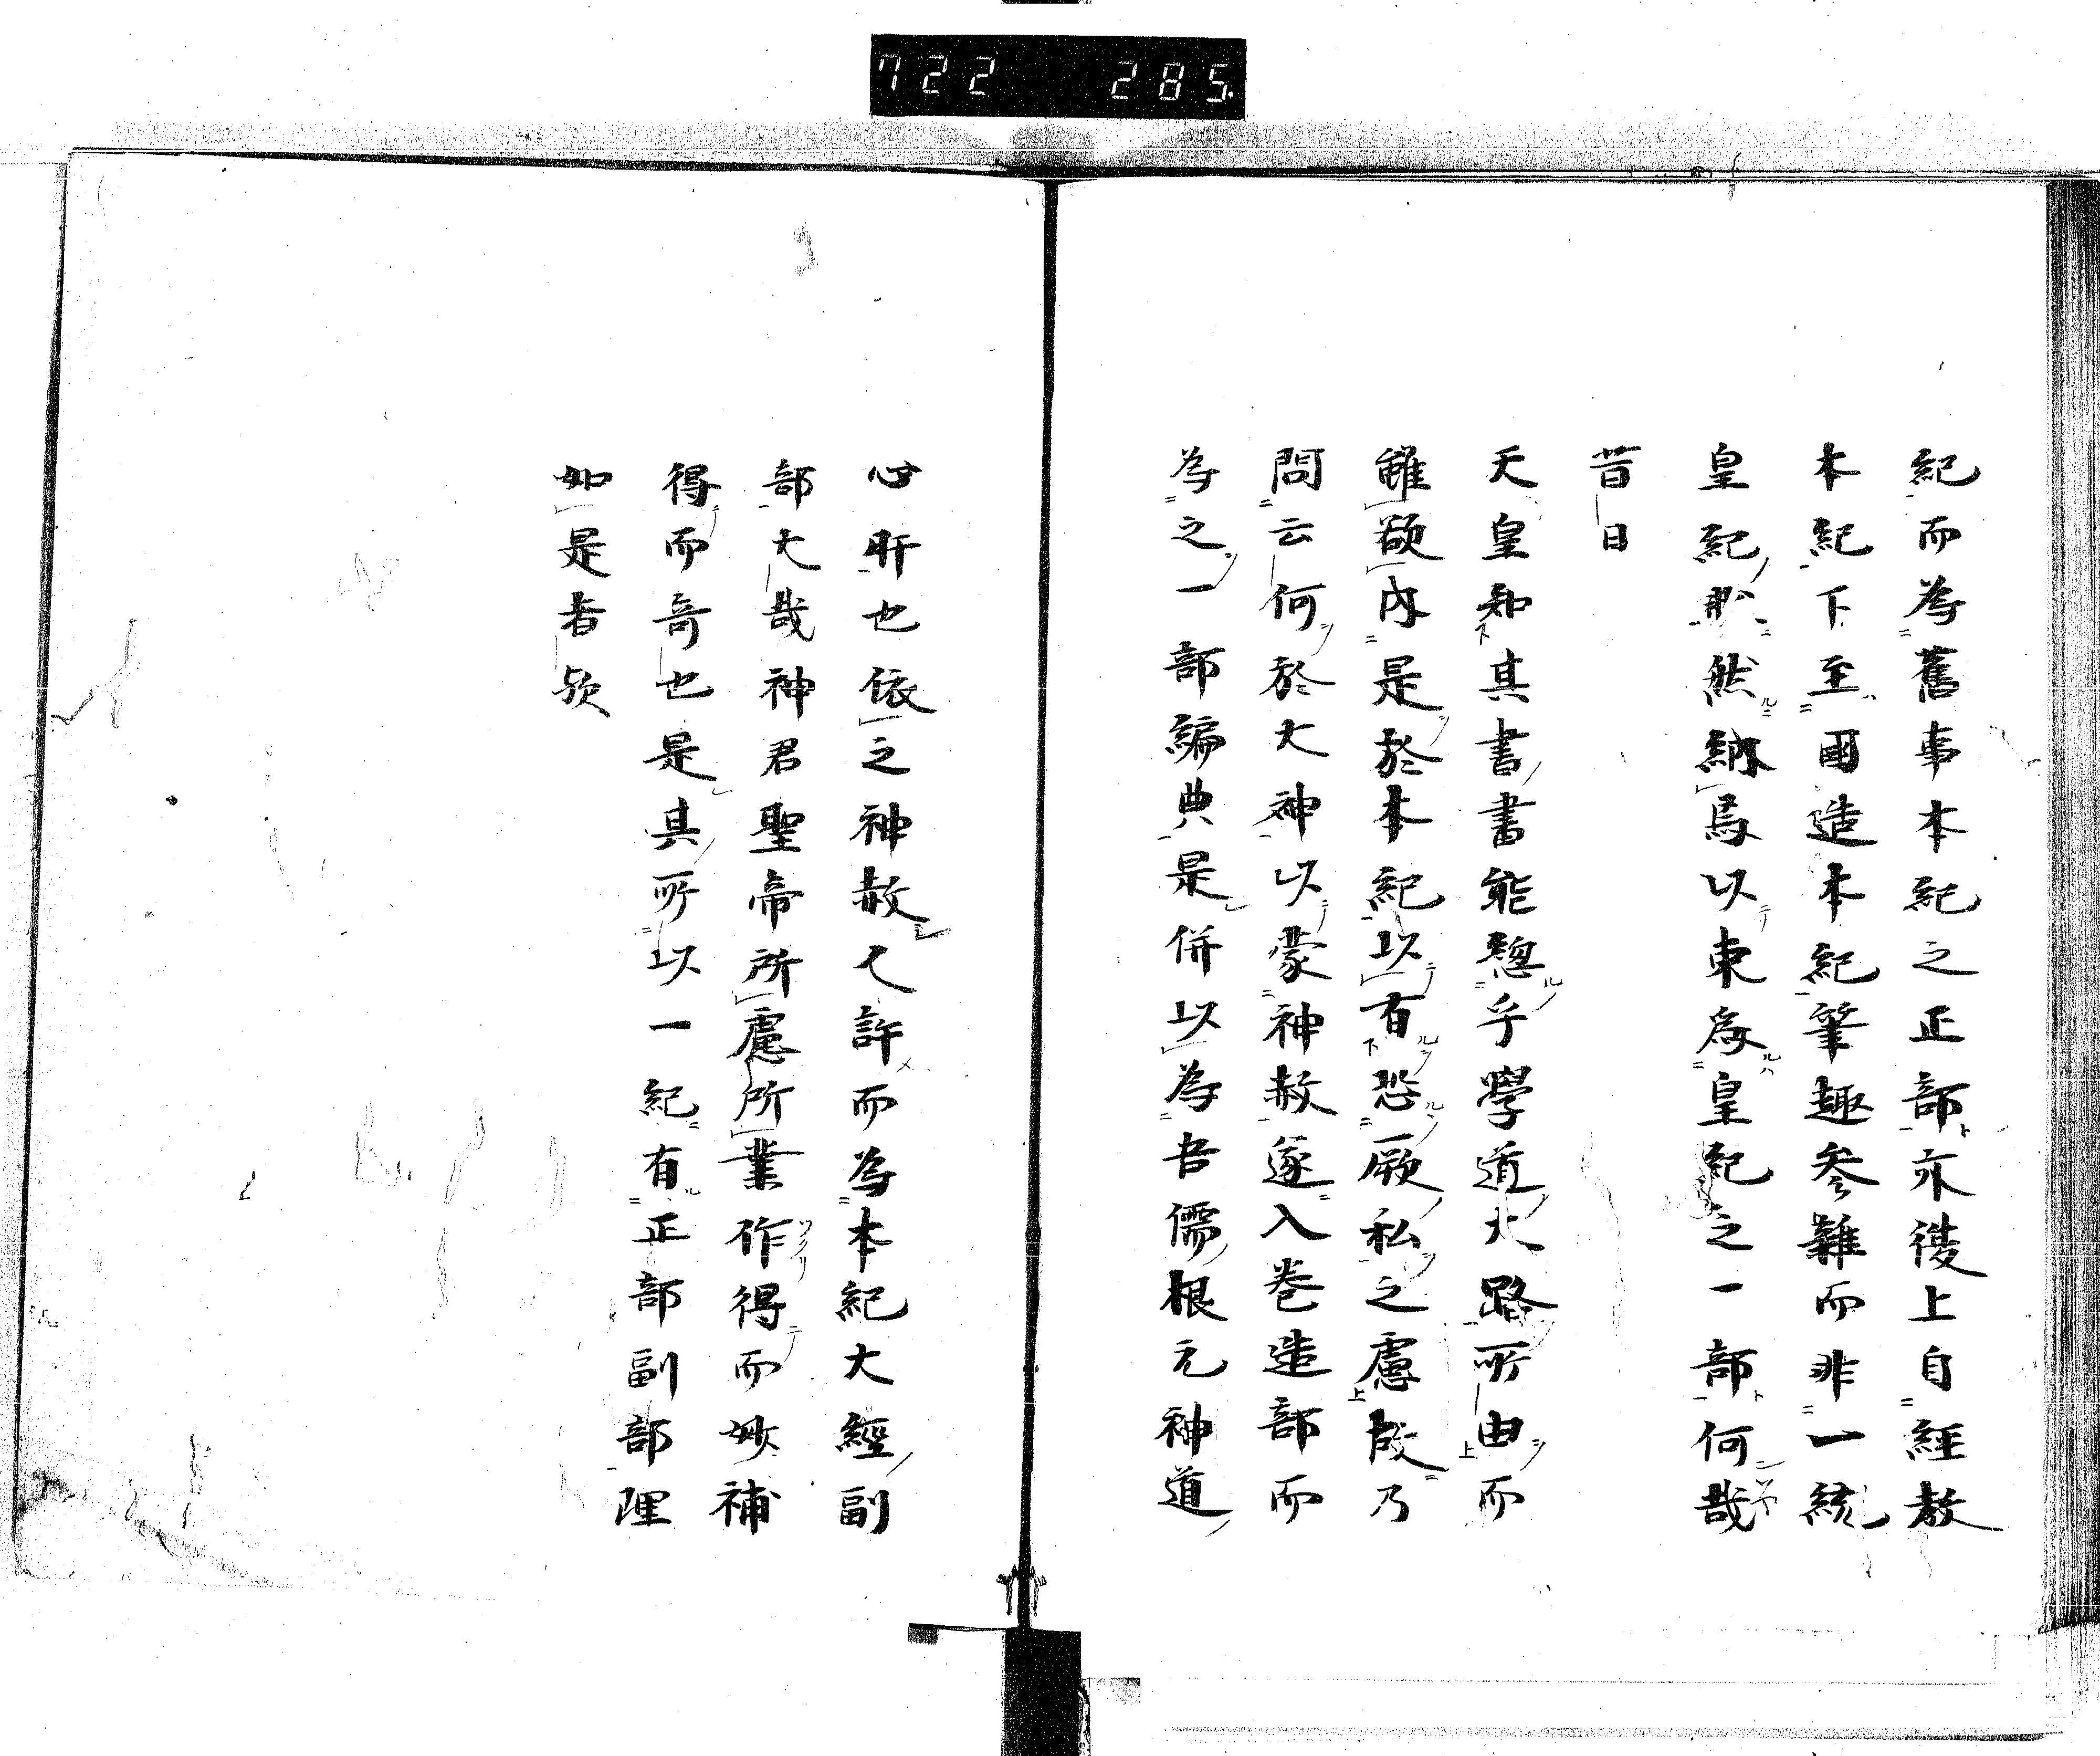 722 285
紀而為舊事本紀之正部亦後上自經教
本紀下至國造本紀筆趣参雜而非一統
皇紀然納焉以東為皇紀之一部何哉
昔日
天皇知其書書能摠乎學道大路所由而
雖欲内是於本紀以有恐厥私之慮故乃
問云何於大神以蒙神赦遂入巻造部而
為之一部編典是併以為吾儒根元神道
心肝也依之神赦乀許而為本紀大經副
部大哉神君聖帝所慮所業作得而妙補
得而奇也是其所以一紀有正部副部理
如是者歟